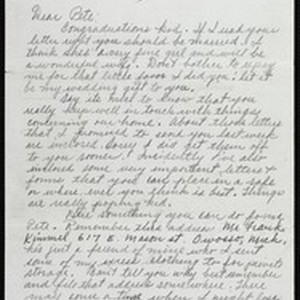 Dear Pete:
Congradutions kid. If I read your
letter right you should be married. I
think she's a very fine girl and will be
a wonderful wife. Don't bother to repay
me for that little favor I did you: let it
be my wedding gift to you.
Say its nice to know that you
really keep well in touch with things
concerning our home. About those letters
that I promised to send you last week
are inclosed. Sorry I did get them off
to you sooner! Incidently I've also
inclosed some very important letters &
forms that you can place in a safe
or where ever you think is best. Things
are really popping kid.
Here something you can do for me
Pete. Remember this address Mr Frank
Kimmel 617 E. Mason st. Owosso, Mich,
his is a friend of mine who I sent
some of my clothing to for
storage. Don't tell you why but remember
and file that address somewhere. There
may come a time when I might